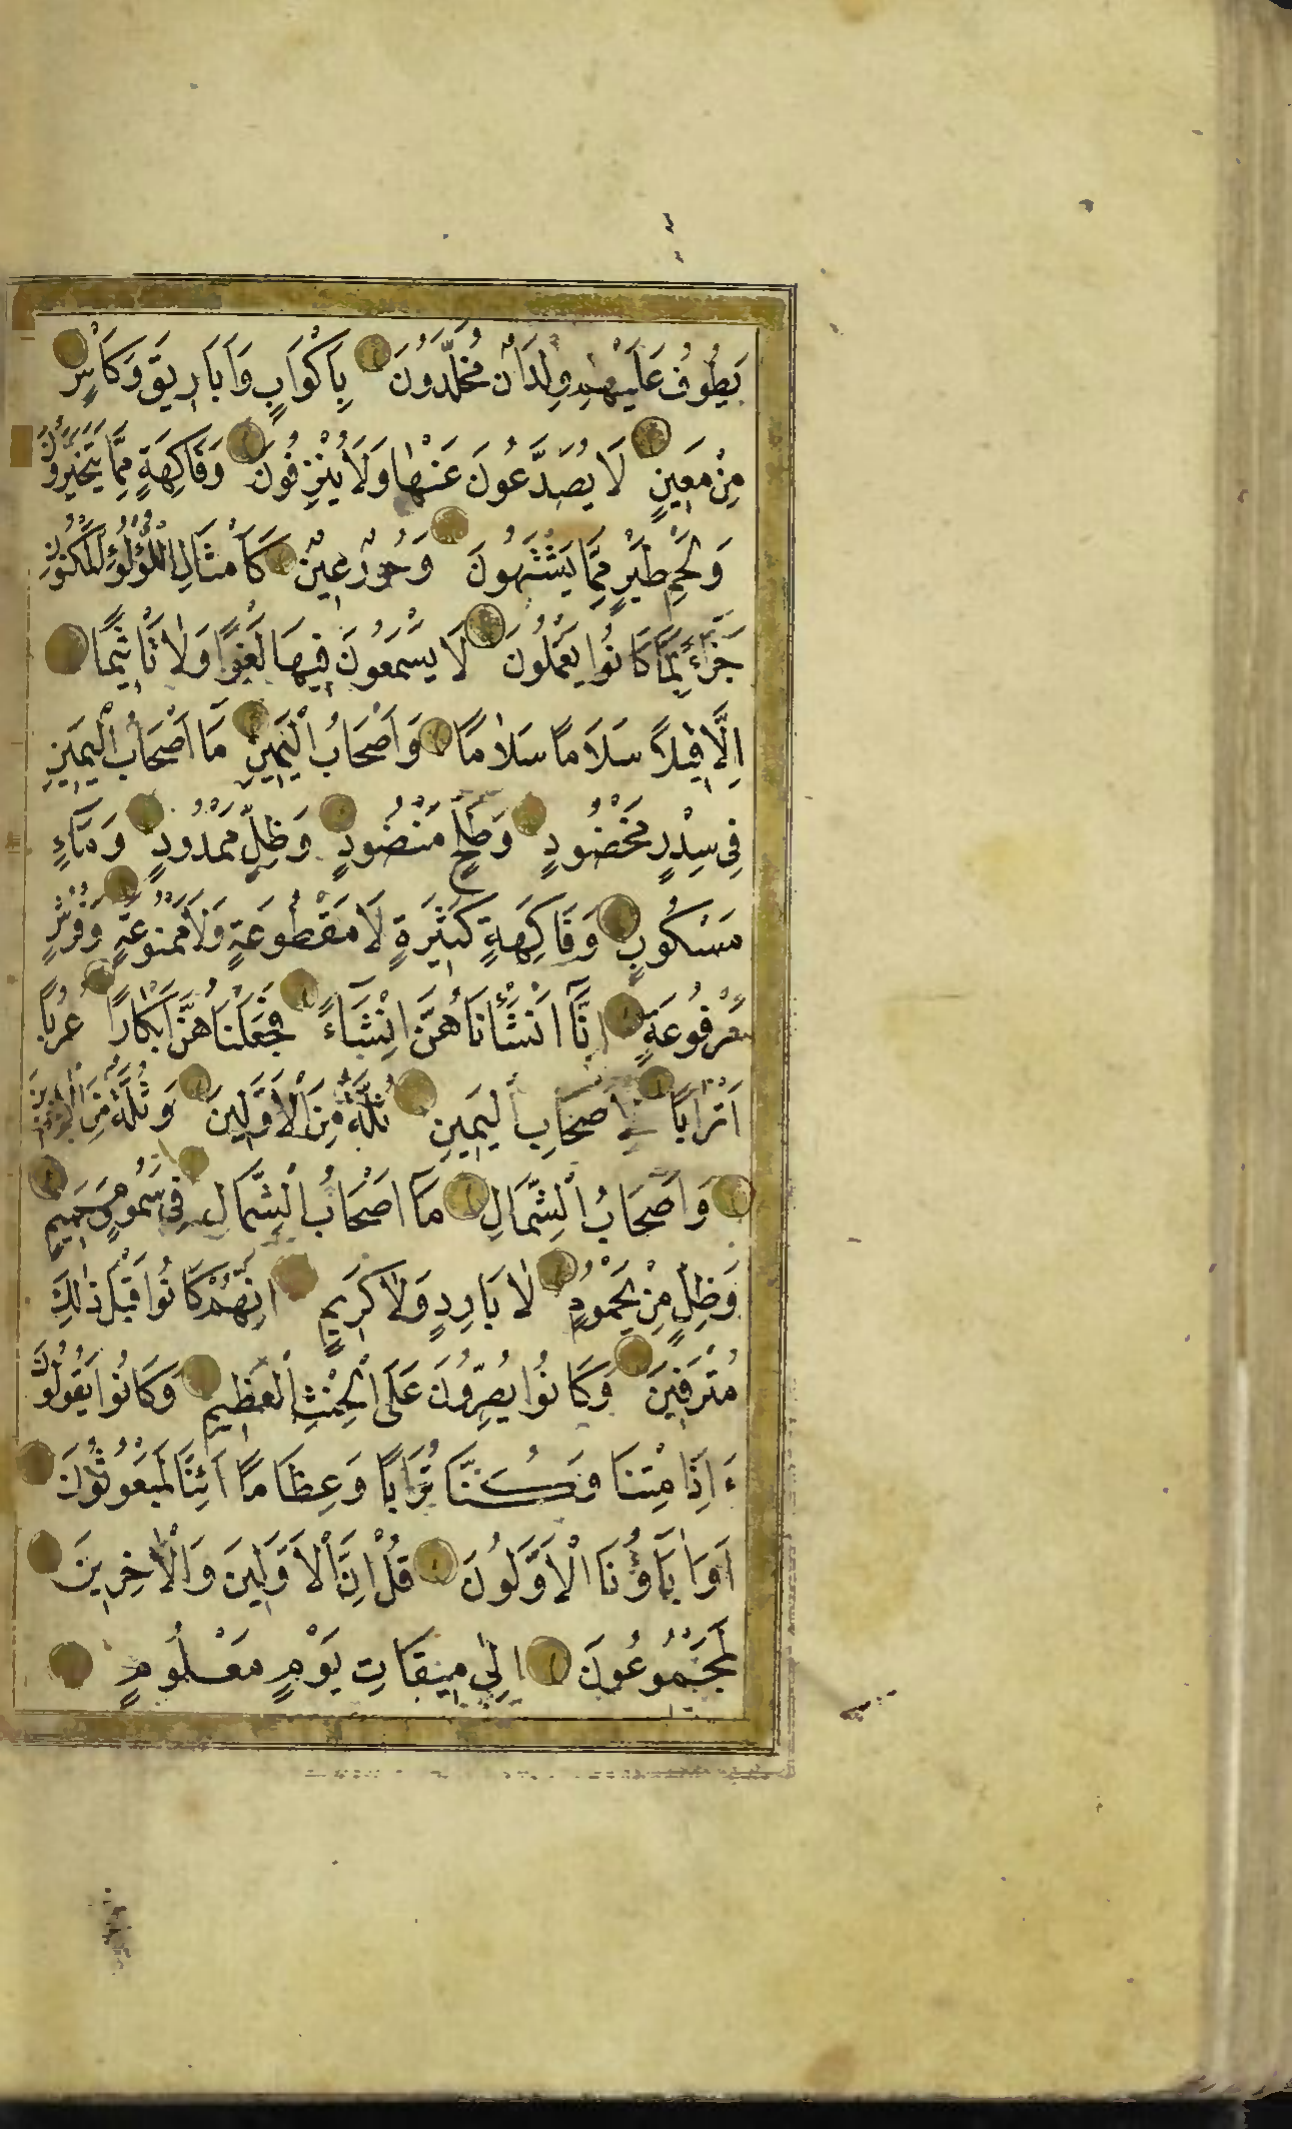 يَطُوفُ عَلَيْهِمْ وِلْدَانٌ مُخَلَّدُونَ بِاَكْوَابٍ وَاَبَارِيقَ وَكَاْسٍ
مِنْ مَعِينٍ لَا يُصَدَّعُونَ عَنْهَا وَلَا يُنْزِفُونَ وَفَاكِهَةٍ مِمَّا يَتَخَيَّرُونَ
وَلَحْمِ طَيْرٍ مِمَّا يَشْتَهُونَ وَحُورٌ عِينٌ كَاَمْثَالِ اللُّؤْلُؤِ الْمَكْنُونِ
جَزَاءً بِمَا كَانُوا يَعْمَلُونَ لَا يَسْمَعُونَ فِيهَا لَغْوًا وَلَا تَاْثِيمًا
اِلَّا قِيلًا سَلَامًا سَلَامًا وَاَصْحَابُ الْيَمِينِ مَا اَصْحَابُ الْيَمِينِ
فِي سِدْرٍ مَخْضُودٍ وَطَلْحٍ مَنْضُودٍ وَظِلٍّ مَمْدُودٍ وَمَاءٍ
مَسْكُوبٍ وَفَاكِهَةٍ كَثِيرَةٍ لَا مَقْطُوعَةٍ وَلَا مَمْنُوعَةٍ وَفُرُشٍ
مَرْفُوعَةٍ اِنَّا اَنْشَاْنَاهُنَّ اِنْشَاءً فَجَعَلْنَاهُنَّ اَبْكَارًا عُرُبًا
اَتْرَابًا لِاَصْحَابِ الْيَمِينِ ثُلَّةٌ مِنَ الْاَوَّلِينَ وَثُلَّةٌ مِنَ الْاٰخِرِينَ
وَاَصْحَابُ الشِّمَالِ مَا اَصْحَابُ الشِّمَالِ فِي سَمُومٍ وَحَمِيمٍ
وَظِلٍّ مِنْ يَحْمُومٍ لَا بَارِدٍ وَلَا كَرِيمٍ اِنَّهُمْ كَانُوا قَبْلَ ذٰلِكَ
مُتْرَفِينَ وَكَانُوا يُصِرُّونَ عَلَى الْحِنْثِ الْعَظِيمِ وَكَانُوا يَقُولُونَ
ءَاِذَا مِتْنَا وَكُنَّا تُرَابًا وَعِظَامًا اَئِنَّا لَمَبْعُوثُونَ
اَوَاٰبَاؤُنَا الْاَوَّلُونَ قُلْ اِنَّ الْاَوَّلِينَ وَالْاٰخِرِينَ
لَمَجْمُوعُونَ اِلٰى مِيقَاتِ يَوْمٍ مَعْلُومٍ